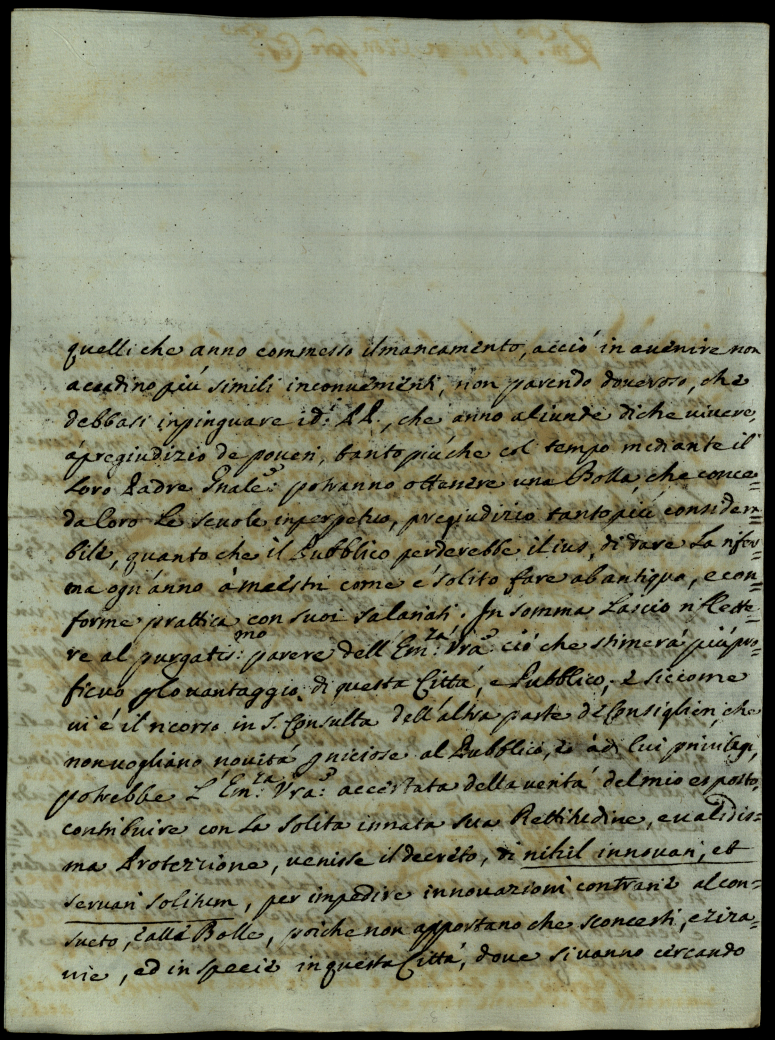 quelli che anno commesso il mancamento, acciò in avenire non
accadino più simili inconvenienti, non parendo doveroso, che
debbasi inpinguare i d.i PP., che anno aliunde di che vivere,
à pregiudizio de poveri, tanto più che col tempo mediante il
Loro Padre Gnale: potranno ottenere una Bolla che conce=
da loro Le scuole inperpetuo, pregiudizio tanto più consider=
bile, quanto che il Pubblico perderebbe il ius, di dare La rifer=
ma ogn'anno à maestri come è solito fare ab antiquo, e con=
forme prattica con suoi salariati. In somma Lascio riflette=
re al purgatis:mo parere dell'Em:za Vra: ciò che stimerà più pro=
ficuo p lo vantaggio di questa Città, e Pubblico, e siccome
vi è il ricorso in S. Consulta dell'altra parte de Consiglieri, che
non vogliano novità pniciose al Pubblico, e à di lui privilegi,
potrebbe L'Em:za Vra: accertata della verità del mio esposto,
contribuire con La solita innata sua Rettitudine, e validis=
ma Protezzione, venisse il decreto, di nihil innovari, et
servari solitum, per impedire innovazioni contrarie al con=
sueto, e alle Bolle, poiche non apportano che sconcerti, e ziza=
nie, ed in specie in questa Città, dove si vanno cercando